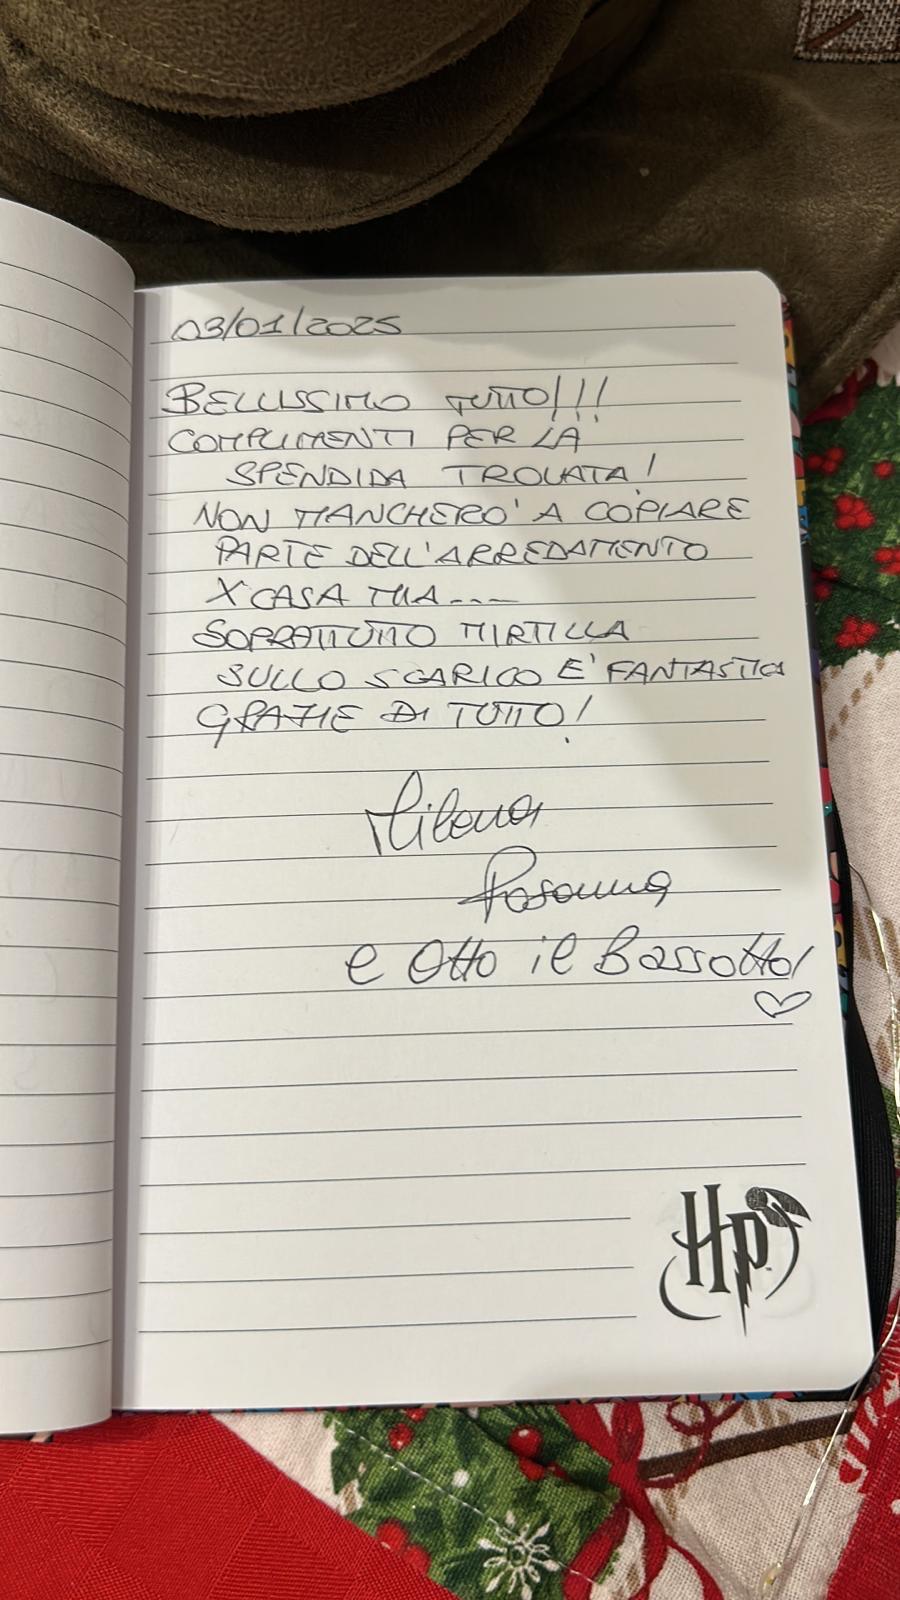 03/01/2025
BELLISSIMO TUTTO!!!
COMPLIMENTI PER LA
SPENDIDA TROVATA!
NON MANCHERO' A COPIARE
PARTE DELL'ARREDAMENTO
X CASA MIA----
SOPRATTUTTO MIRTILLA
SULLO SCARICO E' FANTASTICA
GRAZIE DI TUTTO!
Milena
Rosanna
e Otto il Bassotto!
HP